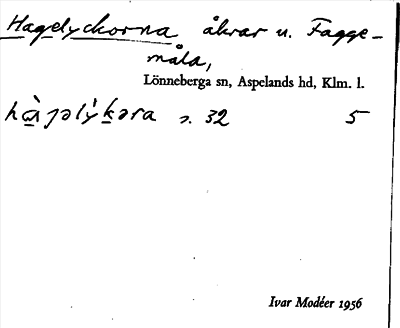 Hagelyckorna åkrar u. Fagge-
måla,
Lönneberga sn, Aspelands hd, Klm. l.
s. 32 5
Ivar Modéer 1956